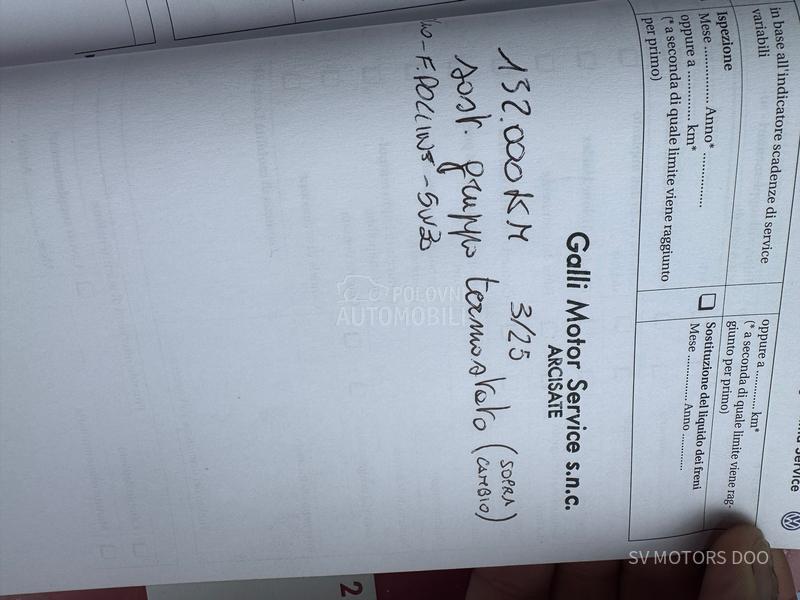 in base all'indicatore scadenze di service
variabili
Ispezione
Mese ............... Anno* ...............
oppure a ............ km*
(* a seconda di quale limite viene raggiunto
per primo)
oppure a ............ km*
(* a seconda di quale limite viene rag-
giunto per primo)
Sostituzione del liquido dei freni
Mese ............... Anno ............
Service
Galli Motor Service s.n.c.
ARCISATE
132.000 KM 3/25
sost. gruppo termostato (SOPRA
CAMBIO)
POLOVNI
AUTOMOBILI
2
SV MOTORS DOO